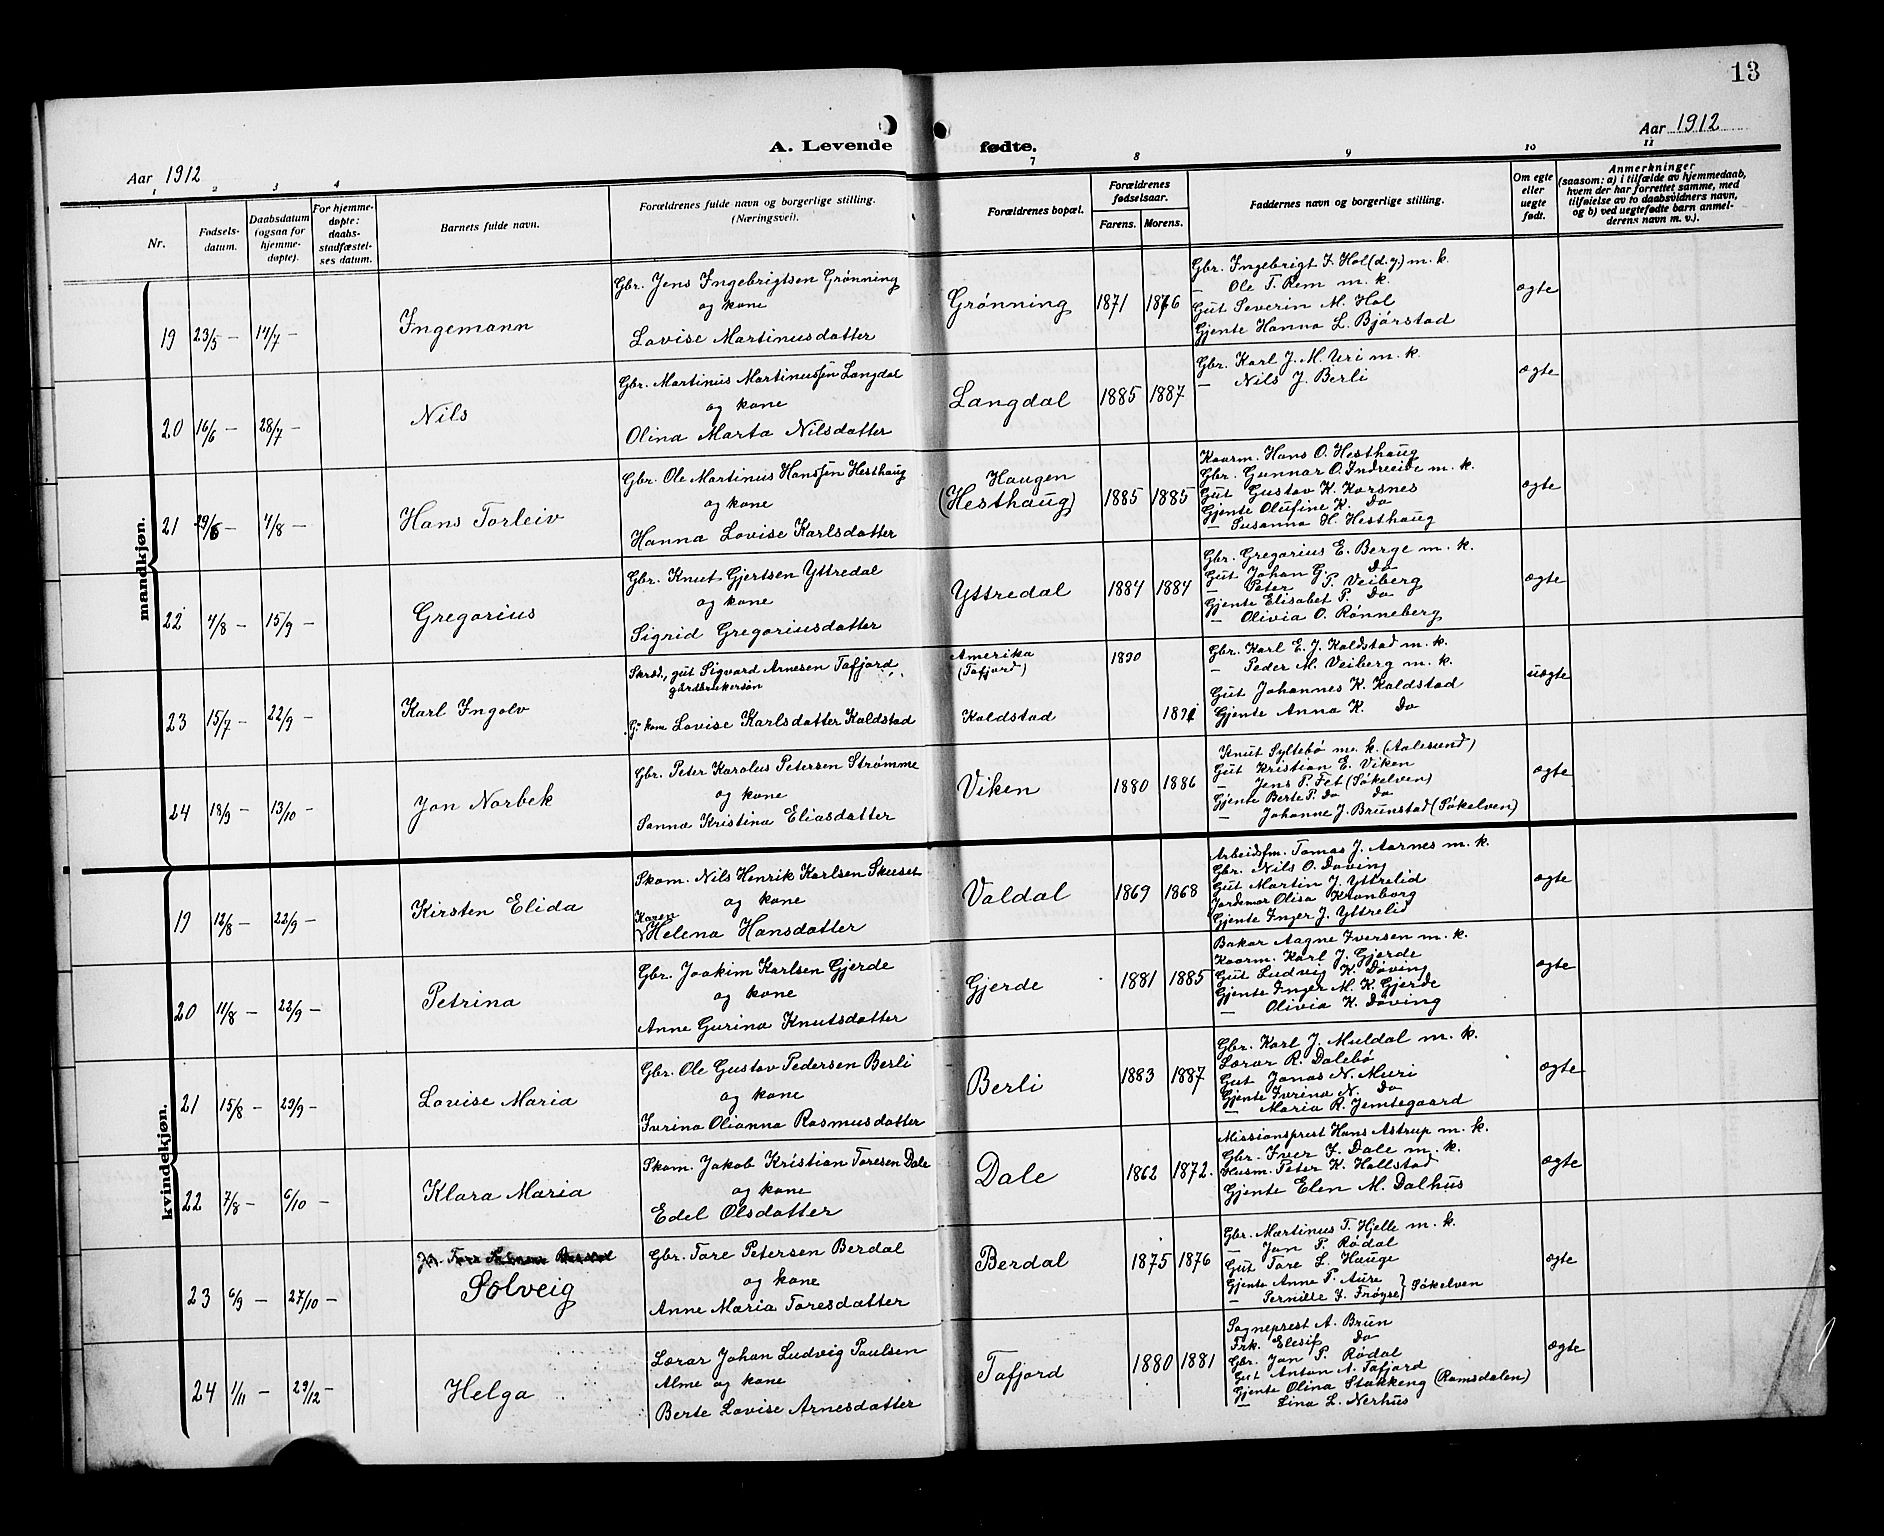 13
Aar 1912
A. Levende
fødte.
Aar 1912
1 2 3 4 7 8 9 10 11
Nr.
Fødsels-
datum.
Daabsdatum
(ogsaa for
hjemme-
døpte).
For hjemme-
døpte:
daabs-
stadfæstel-
ses datum.
Barnets fulde navn.
Forældrenes fulde navn og borgerlige stilling.
(Næringsvei).
Forældrenes bopæl.
Forældrenes
fødselsaar.
Farens. Morens.
Faddernes navn og borgerlige stilling.
Om egte
eller
uegte
født.
Anmerkninger
(saasom: a) i tilfælde av hjemmedaab,
hvem der har forrettet samme, med
tilføielse av to daabsvidners navn,
og b) ved uegtefødte barn anmel-
derens navn m. v.).
mandkjøn.
19 23/5 — 14/7 — Ingemann
Gbr. Jens Ingebrigtsen Grønning
og kone
Lovise Martinusdatter
Grønning 1871 1876
Gbr. Ingebrigt J. Hol (d.y.) m. k.
— Ole T. Rem m. k.
Gut Severin M. Hol
Gjente Hanna L. Bjørstad
ægte
20 16/6 — 28/7 — Nils
Gbr. Martinus Martinussen Langdal
og kone
Olina Marta Nilsdatter
Langdal 1885 1887
Gbr. Karl J. M. Uri m. k.
— Nils J. Berli
ægte
21 29/6 — 4/8 — Hans Torleiv
Gbr. Ole Martinus Hanssen Hesthaug
og kone
Hanna Lovise Karlsdatter
Haugen
(Hesthaug) 1885 1885
Kaarm. Hans O. Hesthaug
Gbr. Gunnar O. Indreeide m. k.
Gut Gustav K. Korsnes
Gjente Olufine K. Do
— Susanna H. Hesthaug
ægte
22 4/8 — 15/9 — Gregorius
Gbr. Knut Gjertsen Yttredal
og kone
Sigrid Gregoriusdatter
Yttredal 1884 1884
Gbr. Gregorius E. Berge m. k.
Gut Johan G. Do
— Peter P. Veiberg
Gjente Elisabet P. Do
— Olivia O. Rønneberg
ægte
23 15/7 — 22/9 — Karl Ingolv
Skræd., gut Sigvard Arnesen Tafjord,
gårdbrukersøn
Lovise Karlsdatter Kaldstad
Amerika
(Tafjord) 1890
Kaldstad 1891
Gbr. Karl E. J. Kaldstad m. k.
— Peder M. Veiberg m. k.
Gut Johannes K. Kaldstad
Gjente Anna K. Do
uægte
24 18/9 — 13/10 — Jon Norbek
Gbr. Peter Karolus Petersen Strømme
og kone
Sanna Kristina Eliasdatter
Viken 1880 1886
Knut Syltebø m. k. (Aalesund)
Gut Kristian E. Viken
— Jens P. Fet (Søkelven)
Gjente Berte P. Do do
— Johanne J. Brunstad (Søkelven)
ægte
kvindekjøn.
19 12/8 — 22/9 — Kirsten Elida
Skom. Nils Henrik Karlsen Skuset
og kone
Karen
Helena Hansdatter
Valdal 1869 1868
Arbeidsfm. Tomas J. Aarnes m. k.
Gbr. Nils O. Døving
Gut Martin J. Yttrelid
Jordmor Olisa Kronborg
Gjente Inger J. Yttrelid
ægte
20 11/8 — 22/9 — Petrina
Gbr. Joakim Karlsen Gjerde
og kone
Anne Gurina Knutsdatter
Gjerde 1881 1885
Bakar Aagne Iversen m. k.
Kaarm. Karl J. Gjerde
Gut Ludvig K. Døving
Gjente Inger M. K. Gjerde
— Olivia K. Døving
ægte
21 15/8 — 29/9 — Lovise Maria
Gbr. Ole Gustav Pedersen Berli
og kone
Ivrina Olianna Rasmusdatter
Berli 1883 1887
Gbr. Karl J. Muldal m. k.
Lærar R. Dalebø
Gut Jonas N. Muri
Gjente Ivrina N. Do
— Maria R. Jemtegaard
ægte
22 7/8 — 6/10 — Klara Maria
Skom. Jakob Kristian Toresen Dale
og kone
Edel Olsdatter
Dale 1862 1872.
Missionsprest Hans Astrup m. k.
Gbr. Iver J. Dale m. k.
Husm. Peter K. Hallstad
Gjente Elen M. Dalhus
ægte
23 6/9 — 27/10 — Solveig
Gbr. Tore Petersen Berdal
og kone
Anne Maria Toresdatter
Berdal 1875 1876
Gbr. Martinus T. Hjelle m. k.
— Jon P. Rødal
Gut Tore L. Hauge
Gjente Anne P. Aure
— Pernille J. Frøyse } Søkelven
ægte
24 1/11 — 29/12 — Helga
Lærar Johan Ludvig Paulsen
Alme og kone
Berte Lovise Arnesdatter
Tafjord 1880 1881
Sogneprest A. Brun
Frk. Elesif do
Gbr. Jon P. Rødal
Gut Anton A. Tafjord
Gjente Olina Stokkeng (Romsdalen)
— Lina L. Nerhus
ægte